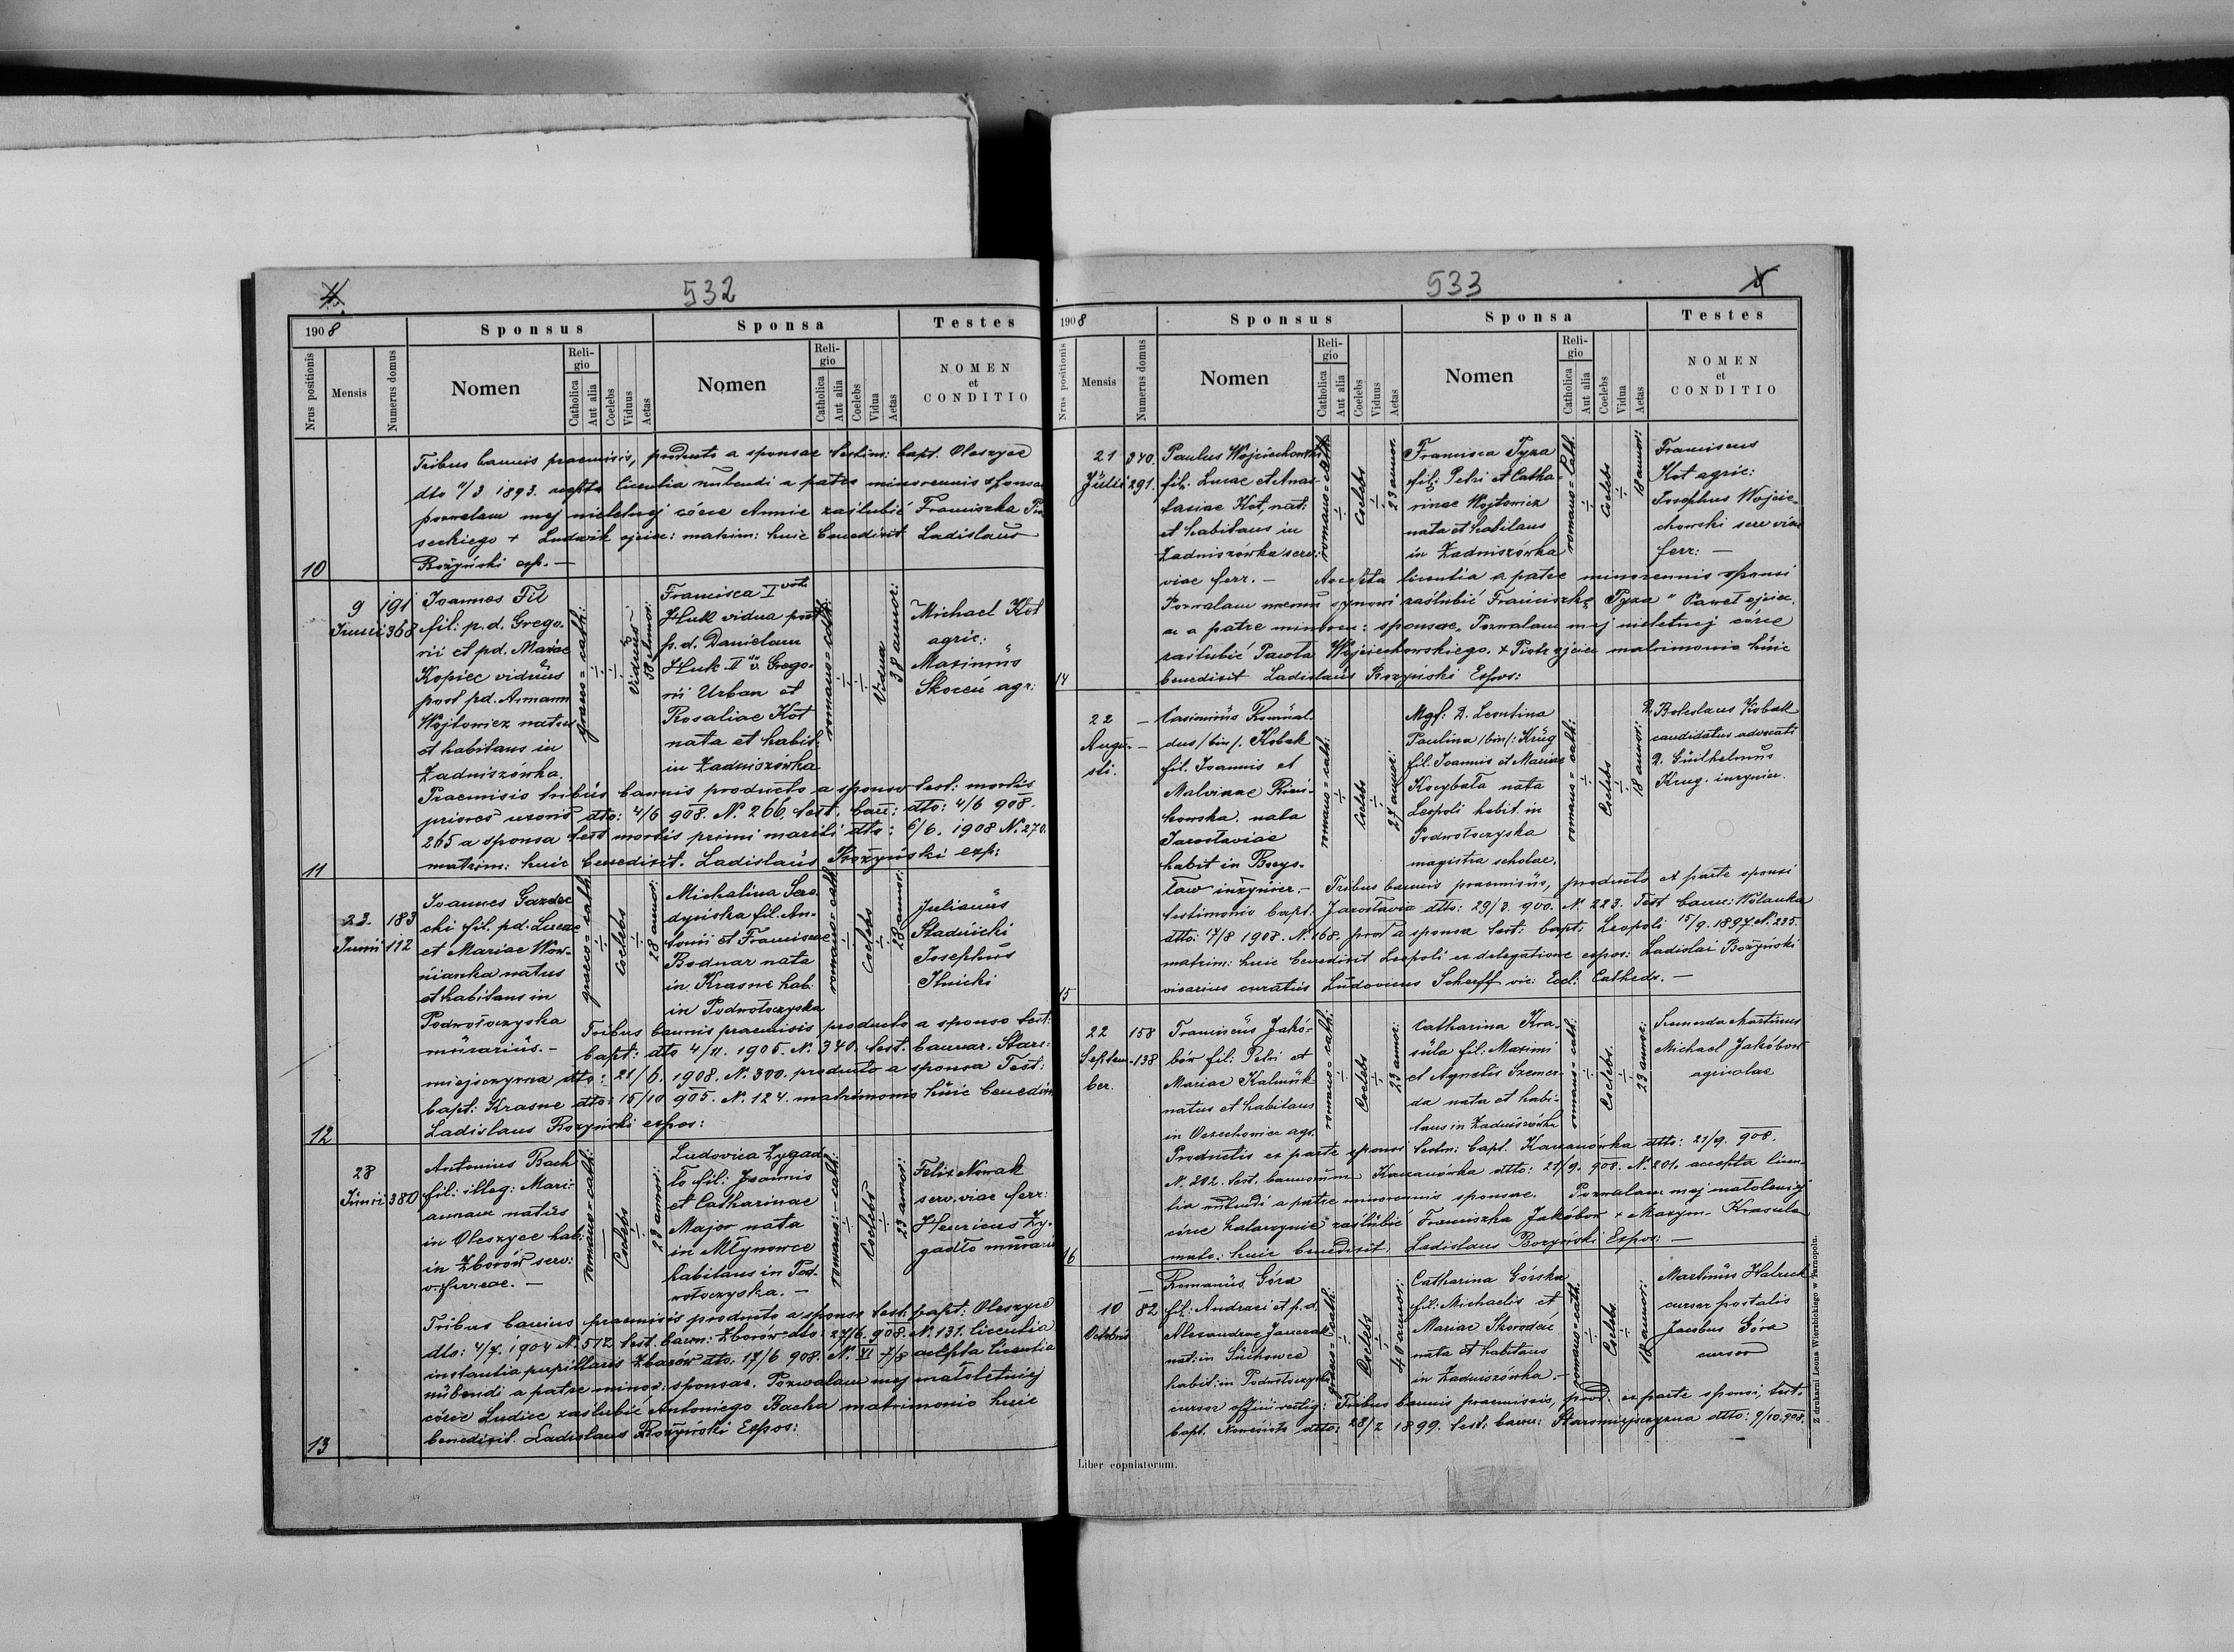 4.
532
1908
Sponsus
Sponsa
Testes
Nrus positionis
Mensis
Numerus domus
Nomen
Religio
Catholica
Aut alia
Coelebs
Viduus
Aetas
Nomen
Religio
Catholica
Aut alia
Coelebs
Vidua
Aetas
NOMEN
et
CONDITIO
Tribus bannis praemissis, producto a sponsae testim: bapt. Oleszyce
dto 11/3 1893. accepta licentia nubendi a patre minorennis sponsae
pozwalam mej nieletniej córce Annie zaślubić Franciszka
seckiego + Ludwik ojciec: matrim: huic benedixit Ladislaus
Bożyński exp. —
10
9
Junii
191
368
Ioannes Fil
fil: p.d. Grego-
rii et pd. Mariae
Kopiec viduus
post pd. Annam
Wojtowicz natus
et habitans in
Zadniszówka.
graeco=cath:
Viduus
58 annor:
Francisca I vot.
Huk vidua post
p.d. Danielem
Huk II v. Grego-
rii Urban et
Rosaliae Kot
nata et habit:
in Zadniszówka
romano=cath:
Vidua
38 annor:
Michael Kot
agric:
Maximus
Skoceń agr:
Praemissis tribus bannis producto a sponso test: mortis
prioris uxoris dto: 4/6 908. N. 266, test. bann: dto: 4/6 908.
265 a sponsa test mortis primi mariti dto: 6/6. 1908 N. 270.
matrim: huic benedixit. Ladislaus Bożyński exp:
11
23.
Junii
183
112
Ioannes Gazdec
chi fil. pd. Lucae
et Mariae Wow-
nianka natus
et habitans in
Podwołoczyska
murarius.—
graeco=cath:
Coelebs
28 annor:
Michalina Sero-
dyńska fil. An-
tonii et Franciscae
Bodnar nata
in Krasne hab:
in Podwołoczyska
romano=cath:
Coelebs
28 annor:
Julianus
Stadnicki
Josephus
Ilnicki
Tribus bannis praemissis producto a sponso test:
bapt: dto 4/11. 1905. N. 340. test. bannor. Staro-
miejszczyzna dto: 21/6. 1908. N. 300. producto a sponsa Test:
bapt: Krasne dto: 15/10 905. N. 124. matrimonio huic benedixit
Ladislaus Bożyński expos:
12
28
Junii
380
Antonius Bach
fil: illeg: Mari-
annae natus
in Oleszyce hab:
in Zborów serv:
v. ferreae. —
romano=cath:
Coelebs
28 annor:
Ludovica Zygad-
ło fil: Joannis
et Catharinae
Major nata
in Młynowce
habitans in Pod-
wołoczyska. —
romano=cath:
Coelebs
23 annor:
Felix Nowak
serv. viae ferr:
Henricus Zy-
gadło murarius
Tribus bannis praemissis producto a sponso test. bapt: Oleszyce
dto: 4/7. 1904 N. 572 test. bann: Zborów dto: 27/6. 908. N. 131. licentia
instantia pupillaris Zborów dto: 17/6 908. N. VI 7/8 accepta licentia
nubendi a patre minor: sponsae. Pozwalam mej małoletniej
córce Ludice zaślubić Antoniego Bacha matrimonio huic
benedixit. Ladislaus Bożyński Expos:
13
533
5
1908
Sponsus
Sponsa
Testes
Nrus positionis
Mensis
Numerus domus
Nomen
Religio
Catholica
Aut alia
Coelebs
Viduus
Aetas
Nomen
Religio
Catholica
Aut alia
Coelebs
Vidua
Aetas
NOMEN
et
CONDITIO
21
Julii
340.
291.
Paulus Wojciechowski
fil. Lucae et Anas-
tasiae Kot, nat:
et habitans in
Zadniszówka serv:
viae ferr. —
romano=cath.
Coelebs
23 annor.
Francisca Tyza
fil: Petri et Catha-
rinae Wojtowicz
nata et habitans
in Zadniszówka
romano=Cath.
Coelebs
18 annor:
Franciscus
Kot agric:
Josephus Wojcie-
chowski serv viae
ferr: —
Accepta licentia a patre minorennis sponsi
Pozwalam memu synowi zaślubić Franciszkę Tyza" Paweł ojciec.
ac a patre minoren: sponsae, Pozwalam mej nieletniej córce
zaślubić Pawła Wojciechowskiego. + Piotr ojciec matrimonio huic
benedixit Ladislaus Bozyński Expos:
14
22
Augu-
sti.
Casimirus Romual-
dus /bin/. Kobak
fil. Ioannis et
Malvinae
howska, nata
Jaroslaviae
habit in Borys-
ław inżynier.—
romano=cath:
Coelebs
27 annor:
Mgf: D. Leontina
Paulina /bin/: Krug
fil Joannis et Mariae
Kocybała nata
Leopoli habit. in
Podwołoczyska
magistra scholae.
romano=cath:
Coelebs
18 annor:
D. Boleslaus Kobak
candidatus advocati
D. Guilhelmus
Krug. inzynier.
Tribus bannis praemissis, producto ex parte sponsi
testimonio bapt: Jaroslavia dtto: 29/3. 900. N. 223. Test bann: Wolanka
dtto: 17/8 1908. N. 168. prod a sponsa test: bapt: Leopoli 15/9. 1897. N. 235.
matrim: huic benedixit Leopoli ex delegatione expos: Ladislai Bożyński
vicarius curatus Ludovicus Scherff vic: Eccl. Cathedr. —
15
22
Septem-
ber.
158
138
Franciscus Jakó-
bów fil: Petri et
Mariae Kalmuk
natus et habitans
in Orzechowice agr.
romano=cath:
Coelebs
23 annor:
Catharina Kra-
sula fil: Maximi
et Agnetis Szemer-
da nata et habi-
tans in Zadniszówka
romano=cath:
Coelebs.
23 annor:
Szemerda Martinus
Michael Jakóbow
agricolae
Productis ex parte sponsi testm: bapt. Kaczanówka dtto: 21/9. 908.
N. 202. test. bannorum Kaczanówka dtto: 21/9. 908. N. 201. accepta licen-
tia nubendi a patre minorennis sponsae. Pozwalam mej małoletniej
córce Katarzynie zaślubić Franciszka Jakóbów + Maxym. Krasula
matr: huic benedixit. Ladislaus Bozyński Expos: —
16
10
Octobris
82
Romanus Góra
fil: Andraei et p.d.
Alexandrae Janczak
nat: in Suchowce
habit: in Podwołoczyska
cursor offici vectig:
graeco=cath:
Coelebs
40 annor:
Catharina Górska
fil: Michaelis et
Mariae Skorodeń
nata et habitans
in Zadniszówka.—
romano=cath.
Coelebs
18 annor:
Martinus Halzuch
cursor postalis
Jacobus Góra
cursor
Tribus bannis praemissis, prod. ex parte sponsi, test.
bapt. dtto: 28/2 1899. test: bann: Staromiejszczyzna dtto: 9/10. 908.
Liber copulatorum.
Z drukarni Leona Wierzbickiego w Tarnopolu.